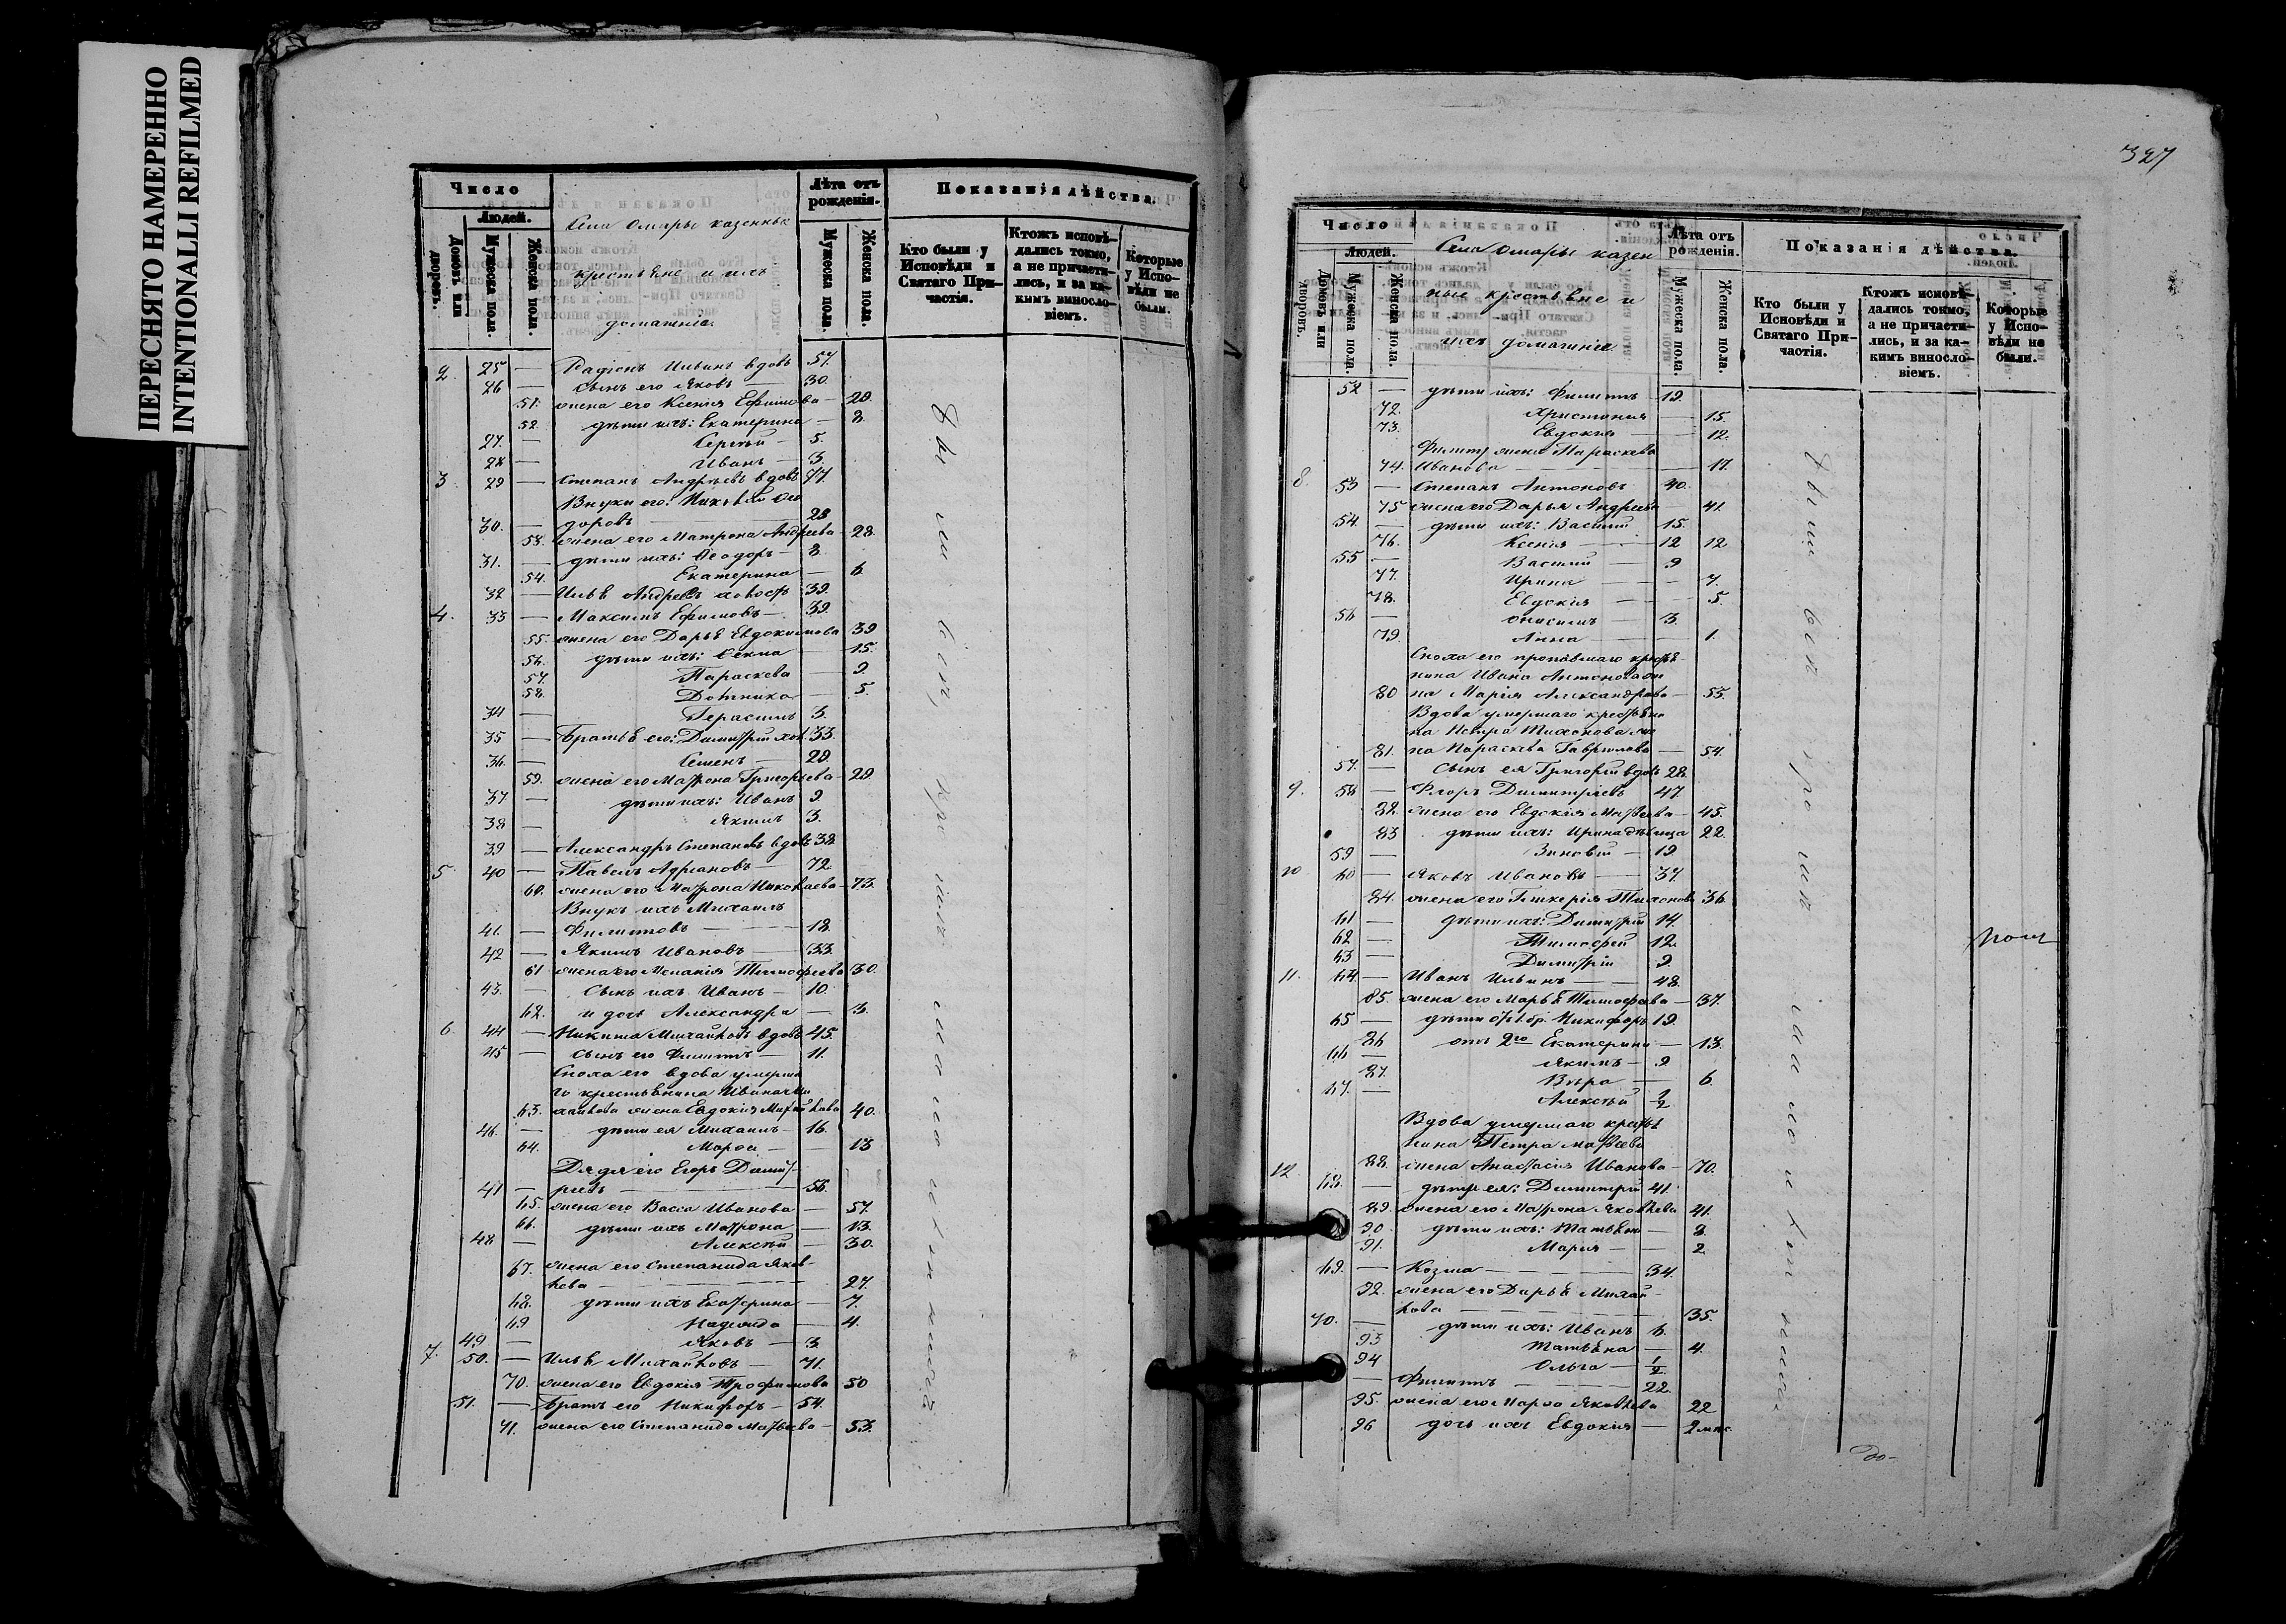 ПЕРЕСНЯТО НАМЕРЕННО
INTENTIONALLI REFILMED
Число
Людей.
Домовъ или дворовъ.
Мужеска пола.
Женска пола.
Села Омары казенные
крестьяне и ихъ
домашніе.
Лѣта отъ рожденія.
Мужеска пола.
Женска пола.
Показанія дѣйства.
Кто были у Исповѣди и Святаго При-частія.
Ктожъ исповѣ-дались токмо, а не причасти-лись, и за ка-кимъ винослo-віемъ.
Которые у Испо-вѣди не были.
2. 25 — Радіонъ Ильинъ вдовъ 57.
26 — сынъ его Яковъ — 30.
51. жена его Ксенія Ефимова — 29.
52. дѣти ихъ: Екатерина — 8.
27. — Сергѣй — 5.
28 — Иванъ — 3.
3 29 — Степанъ Андреевъ вдовъ 77.
Внуки его: Ѳео
30. — доровъ — 28
53. жена его Матрона Андреева — 28.
31. — дѣти ихъ: Ѳеодоръ — 8.
54. Екатерина — 6.
32 — Илья Андреевъ холост 39.
4. 33 — Максимъ Ефимовъ — 39.
55. жена его Дарья Евдокимова 39
56. дѣти ихъ: Ѳекла — 15.
57. Параскева — 9.
58. Домника — 5.
34 — Герасимъ 3.
35 — Братья его: Димитрій хол. 33.
36. — Семенъ — 29.
59. жена его Матрона Григорьева — 29.
37 — дѣти ихъ: Иванъ 9.
38 — Якимъ 3.
39 — Александръ Степановъ вдовъ 38.
5 40 — Павелъ Адріановъ — 72.
60. жена его Матрона Николаева — 73.
Внукъ ихъ Михаилъ
41. — Филиповъ — 18.
42 — Якимъ Ивановъ — 33.
61 жена его Меланія Тимофеева 30.
43. — сынъ ихъ Иванъ — 10.
62. и дочь Александра — 3.
6. 44 — Никита Михайловъ вдовъ 45.
45 — сынъ его Филиппъ — 11.
Сноха его вдова умерша
го крестьянина Ивана Ми
63. хайлова жена Евдокія Михайлова 40.
46. — дѣти ея Михаилъ — 16.
64. Марѳа — 13
Дядя его Егоръ Димит-
47 — ріевъ — 56.
65. жена его Васса Иванова — 57.
66. дѣти ихъ Матрона — 13.
48 — Алексѣй — 30.
67. жена его Степанида Яков-
лева — 27.
68. дѣти ихъ Екатерина — 7.
69 Надежда — 4.
49. — Яковъ — 3
7. 50. — Илья Михайловъ — 71.
70. жена его Евдокія Трофимова 50
51. — Братъ его Никифоръ — 54.
71. жена его Степанида Матвѣева — 53.
327
Число
Людей.
Домовъ или дворовъ.
Мужеска пола.
Женска пола.
Села Омары казен
ные крестьяне и
ихъ домашніе.
Лѣта отъ рожденія.
Мужеска пола.
Женска пола.
Показанія дѣйства.
Кто были у Исповѣди и Святаго При-частія.
Ктожъ исповѣ-дались токмо, а не причасти-лись, и за ка-кимъ винослo-віемъ.
Которые у Испо-вѣди не были.
52 — дѣти ихъ: Филиппъ — 19.
72. Христинія — 15.
73. Евдокія — 12.
Филип. жена Параскева
74. Иванова — 17.
8. 53 — Степанъ Антоновъ 40.
75 жена его Дарья Андреева — 41.
54. — дѣти ихъ: Василій — 15.
76. Ксенія — 12 12
55 — Василій — 9
77. Ирина — 7.
78. Евдокія — 5.
56 — Онисимъ — 3.
79. Анна — 1.
Сноха его пропавшаго крестья
нина Ивана Антонова же
80 на Марія Александрова — 55.
Вдова умершаго крестьяни
на Петра Тихонова же
81. на Параскева Гаврилова — 54.
57. — Сынъ ея Григорій вдовъ 28.
9. 58 — Флоръ Димитріевъ 47.
82. жена его Евдокія Матвеева — 45.
83 дѣти ихъ: Ирина дѣвица 22.
59 — Зиновій — 19.
10 60 — Яковъ Ивановъ — 37.
84. жена его Гликерія Тихонова 36.
61 — дѣти ихъ: Димитрій 14.
62 — Тимофей 12.
63 — Димитрій 9.
11. 64 — Иванъ Ильинъ — 48.
85. жена его Марья Тимофеева — 37.
65 — дѣти отъ 1. бр. Никифоръ 19.
86 отъ 2го Екатерина — 13.
66 — Якимъ — 9
87. Вѣра — 6.
67. — Алексѣй 1/2
Вдова умершаго крестья
нина Петра Матвѣева
12. 88. жена Анастасія Иванова — 70.
68. — дѣти ея: Димитрій 41.
89. жена его Матрона Яковлева 41.
90. дѣти ихъ: Татьяна — 8.
91. Марія — 2.
69. — Козма — 34.
92. жена его Дарья Михай-
лова — 35.
70. — дѣти ихъ: Иванъ 6.
93 Татьяна — 4.
94 Ольга — 1/2
— Филиппъ — 22.
95. жена его Марѳа Яковлева 22
96 дочь ихъ Евдокія — 2 мѣс.